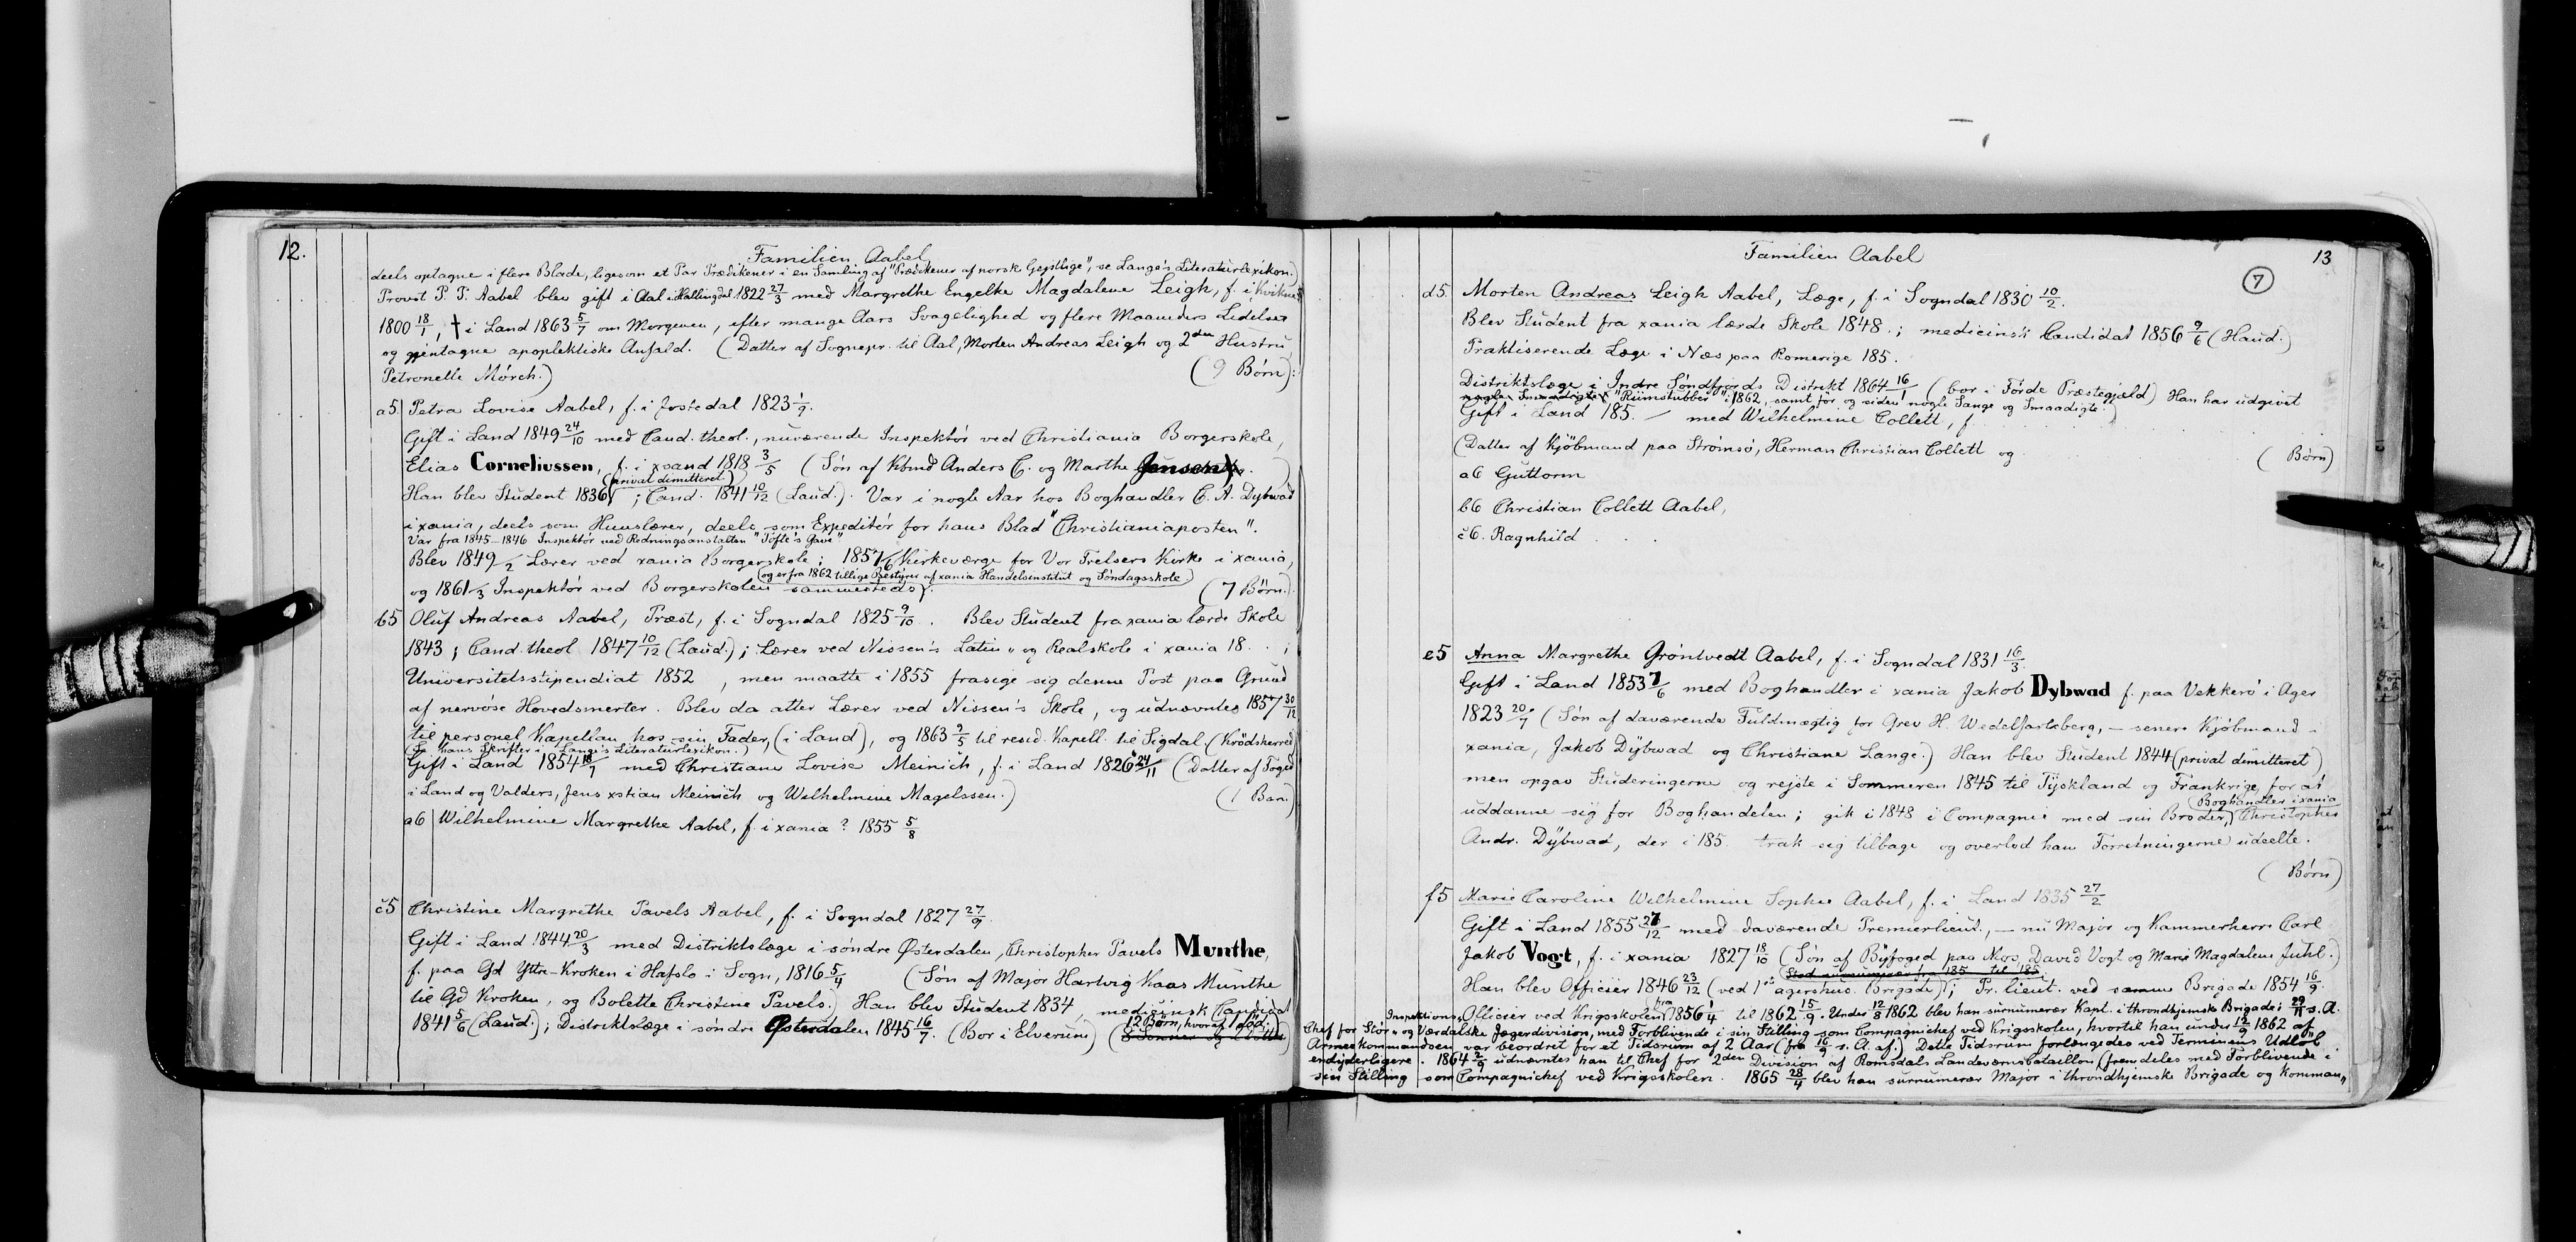 12.
Familien Aabel
deels optagne i flere Blade, ligesom et Par Prædikener i en Samling af "Prædikener af norsk Gejstlige", se Lange's Literaturlexikon.)
Provst P. P. Aabel blev gift i Aal i Hallingdal 1822 27/3 med Margrethe Engelke Magdalene Leigh, f. i Kvikne
1800 18/1, † i Land 1863 5/7 om Morgenen, efter mange Aars Svagelighed og flere Maaneders Lidelser
og gjentagne apoplektiske Anfald. (Datter af Sognepr. til Aal, Morten Andreas Leigh og 2den Hustru
Petronelle Mörch.) (9 Børn):
a5. Petra Lovise Aabel, f. i Jostedal 1823 1/9.
Gift i Land 1849 24/10 med Cand. theol., nuværende Inspektór ved Christiania Borgerskole,
Elias Corneliussen, f. i xsand 1818 3/5 (Søn af Kbmd Anders C. og Marthe Jensen).
(privat dimitteret)
Han blev Student 1836; Cand. 1841 10/12 (Laud.). Var i nogle Aar hos Boghandler C. A. Dybwad
i xania, deels som Huuslærer, deels som Expeditór for hans Blad "Christianiaposten".
Var fra 1845-1846 Inspektór ved Redningsanstalten "Tofte's Gave"
Blev 1849 /2 Lærer ved xania Borgerskole; 1857 /6 Kirkeværge for Vor Frelsers Kirke i xania,
(og er fra 1862 tillige Bestyrer af xania Handelsinstitut og Söndagsskole.)
og 1861 /3 Inspektór ved Borgerskolen sammesteds). (7 Børn.)
b5 Oluf Andreas Aabel, Præst, f. i Sogndal 1825 9/10. Blev Student fra xania lærde Skole
1843; Cand. theol 1847 10/12 (Laud.); Lærer ved Nissen's Latin- og Realskole i xania 18 . . ;
Universitetsstipendiat 1852 , men maatte i 1855 frasige sig denne Post paa Grund
af nervóse Hovedsmerter. Blev da atter Lærer ved Nissen's Skole, og udnævntes 1857 30/12
til personel Kapellan hos sin Fader, (i Land), og 1863 9/5 til resid. Kapell. til Sigdal (Krödsherred
(Se hans Skrifter i Lange's Literaturlexikon.)
Gift i Land 1854 18/7 med Christiane Lovise Meinich, f. i Land 1826 24/11 (Datter af Foged
i Land og Valders, Jens xstian Meinich og Wilhelmine Magelssen.) (1 Barn)
a6 Wilhelmine Margrethe Aabel, f. i xania ? 1855 5/8
c5 Christine Margrethe Pavels Aabel, f. i Sogndal 1827 27/9.
Gift i Land 1844 20/3 med Distriktslæge i søndre Østerdalen, Christopher Pavels Munthe,
f. paa Gd Yttre-Kroken i Hafslo i Sogn, 1816 5/4 (Søn af Major Hartvig Kaas Munthe
til Gd Kroken, og Bolette Christine Pavels.) Han blev Student 1834, medicinsk Candidat
1841 5/6 (Laud.); Distriktslæge i søndre Østerdalen 1845 16/7. (Bor i Elverum) (12 Børn, hvoraf 1 død.)
13
Familien Aabel
7
d5. Morten Andreas Leigh Aabel, Læge, f. i Sogndal 1830 10/2.
Blev Student fra xania lærde Skole 1848.; medicinsk Candidat 1856 9/6 (Haud.)
Praktiserende Læge i Næs paa Romerige 185.
Distriktslæge i Indre Söndfjords Distrikt 1864 16/ (bor i Förde Præstegjeld) Han har udgivet
nogle Smaadigte "Riimstubber" i 1862, samt för og siden nogle Sange og Smaadigte.)
Gift i Land 185. / med Wilhelmine Collett, f.
(Datter af Kjöbmand paa Strömsö, Herman Christian Collett og
( Børn)
a6 Guttorm
b6 Christian Collett Aabel,
c6. Ragnhild
e5 Anna Margrethe Gröntvedt Aabel, f. i Sogndal 1831 16/3.
Gift i Land 1853 7/6 med Boghandler i xania Jakob Dybwad f. paa Vekkerö i Ager
1823 20/7 (Søn af daværende Fuldmægtig for Grev H. Wedel Jarlsberg, – senere Kjöbmand i
xania, Jakob Dybwad og Christiane Lange.) Han blev Student 1844 (privat dimitteret)
men opgav Studeringerne og rejste i Sommeren 1845 til Tyskland og Frankrige for at
(Boghandler i xania
uddanne sig for Boghandelen; gik i 1848 i Compagni med sin Broder, Christopher
Andr. Dybwad, der i 185. trak sig tilbage og overlod ham Forretningerne udeelte.
( Børn)
f5 Marie Caroline Wilhelmine Sophie Aabel, f. i Land 1835 27/2
Gift i Land 1855 27/12 med daværende Premierlieut., – nu Major og Kammerherre Carl
Jakob Vogt, f. i xania 1827 18/10 (Søn af Byfoged paa Mos, David Vogt og Marie Magdalene Juhl.)
Han blev Officier 1846 23/12 (ved 1ste agershus. Brigade); Pr. lieut. ved samme Brigade 1854 16/9.
Inspektions Officier ved Krigsskolen fra 1856 1/4 til 1862 15/9. Under 12/8 1862 blev han surnumerær Kapt. i throndhjemske Brigade; 29/11 s. A.
Chef for Stör- og Værdalske Jægerdivision, med Forblivende i sin Stilling som Compagnichef ved Krigsskolen, hvortil han under 12/9 1862 af
Armeekommandoen var beordret for et Tidsrum af 2 Aar (fra 16/9 s. A. af.) Dette Tidsrum forlængedes ved Terminens Udlöb
endyderligere. 1864 2/9 udnævntes han til Chef for 2den Division af Romsdals Landeværnsbataillon (fremdeles med Forblivende i
sin Stilling som Compagnichef ved Krigsskolen. 1865 28/4 blev han surnumerær Major i throndhjemske Brigade og Komman„